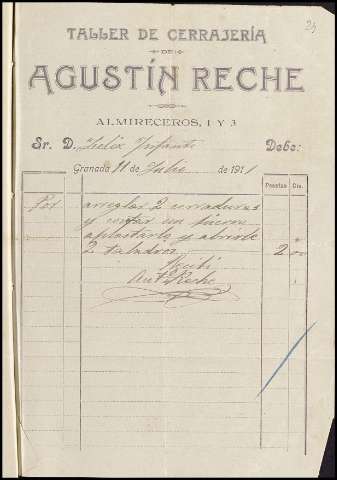 24
TALLER DE CERRAJERÍA
DE
AGUSTÍN RECHE
ALMIRECEROS, 1 Y 3
Sr. D. Felix Infante Debe:
Granada 11 de Julio de 1911
Pesetas Cts.
Por arreglar 2 cerraduras
y cortar un
aplastarlo y abrirle
2 taladros 2 00
Recibí
Ant Reche